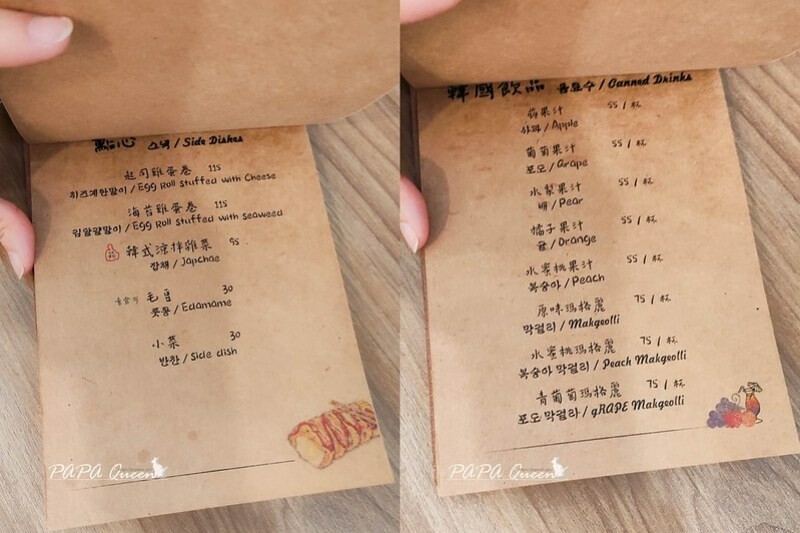 點心 스낵 / Side Dishes
起司雞蛋卷 115
치즈계란말이 / Egg Roll stuffed with Cheese
海苔雞蛋卷 115
/ Egg Roll stuffed with seaweed
韓式涼拌雜菜 95
잡채 / Japchae
毛豆 30
풋콩 / Edamame
小菜 30
반찬 / Side dish
PAPA Queen
韓國飲品 음료수 / Canned Drinks
蘋果汁 55 / 杯
사과 / Apple
葡萄果汁 55 / 杯
포도 / Grape
水梨果汁 55 / 杯
배 / Pear
橘子果汁 55 / 杯
귤 / Orange
水蜜桃果汁 55 / 杯
복숭아 / Peach
原味瑪格麗 75 / 杯
막걸리 / Makgeolli
水蜜桃瑪格麗 75 / 杯
복숭아 막걸리 / Peach Makgeolli
青葡萄瑪格麗 75 / 杯
포도 막걸리 / gRAPE Makgeolli
PAPA Queen